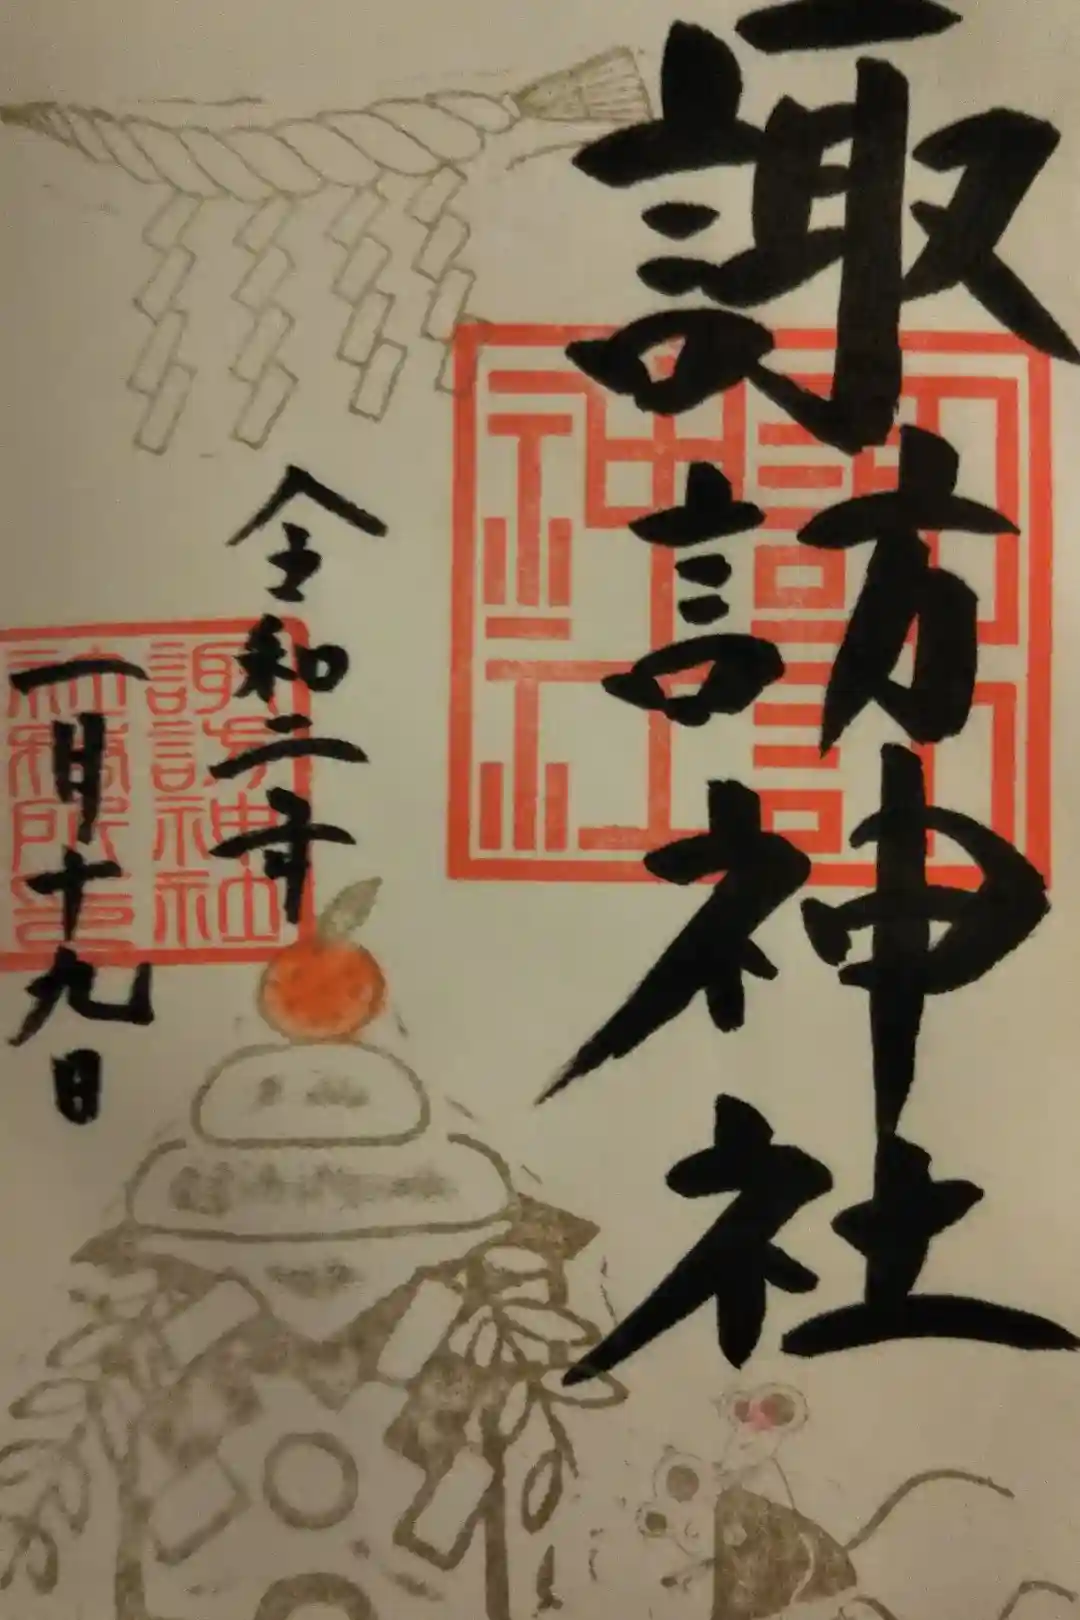 諏訪神社
諏訪神社
令和二年
一月十九日
諏訪神社
社務所印